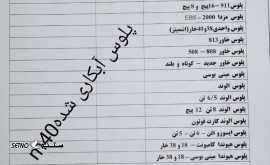 پلوس 911 – 16پیچ و 8 پیچ
پلوس مزدا 2000 – EBS
پلوس واحدی38و40خار(اشمیتز)
پلوس خاور813
پلوس خاور 808 – 508
پلوس خاور جدید – کوتاه و بلند
پلوس مینی بوسی
پلوس الوند
پلوس الوند 6/5 تن
پلوس الوند 8 تن 12 پیچ
پلوس الوند کارت فوتون
پلوس ایسوزو 6تن – 5 تن
پلوس هیوندا کامیونت – 18 و 38 خار
پلوس هیوندا مینی بوسی – 18 و 38 خار
پلوس آبکاری شده n:40